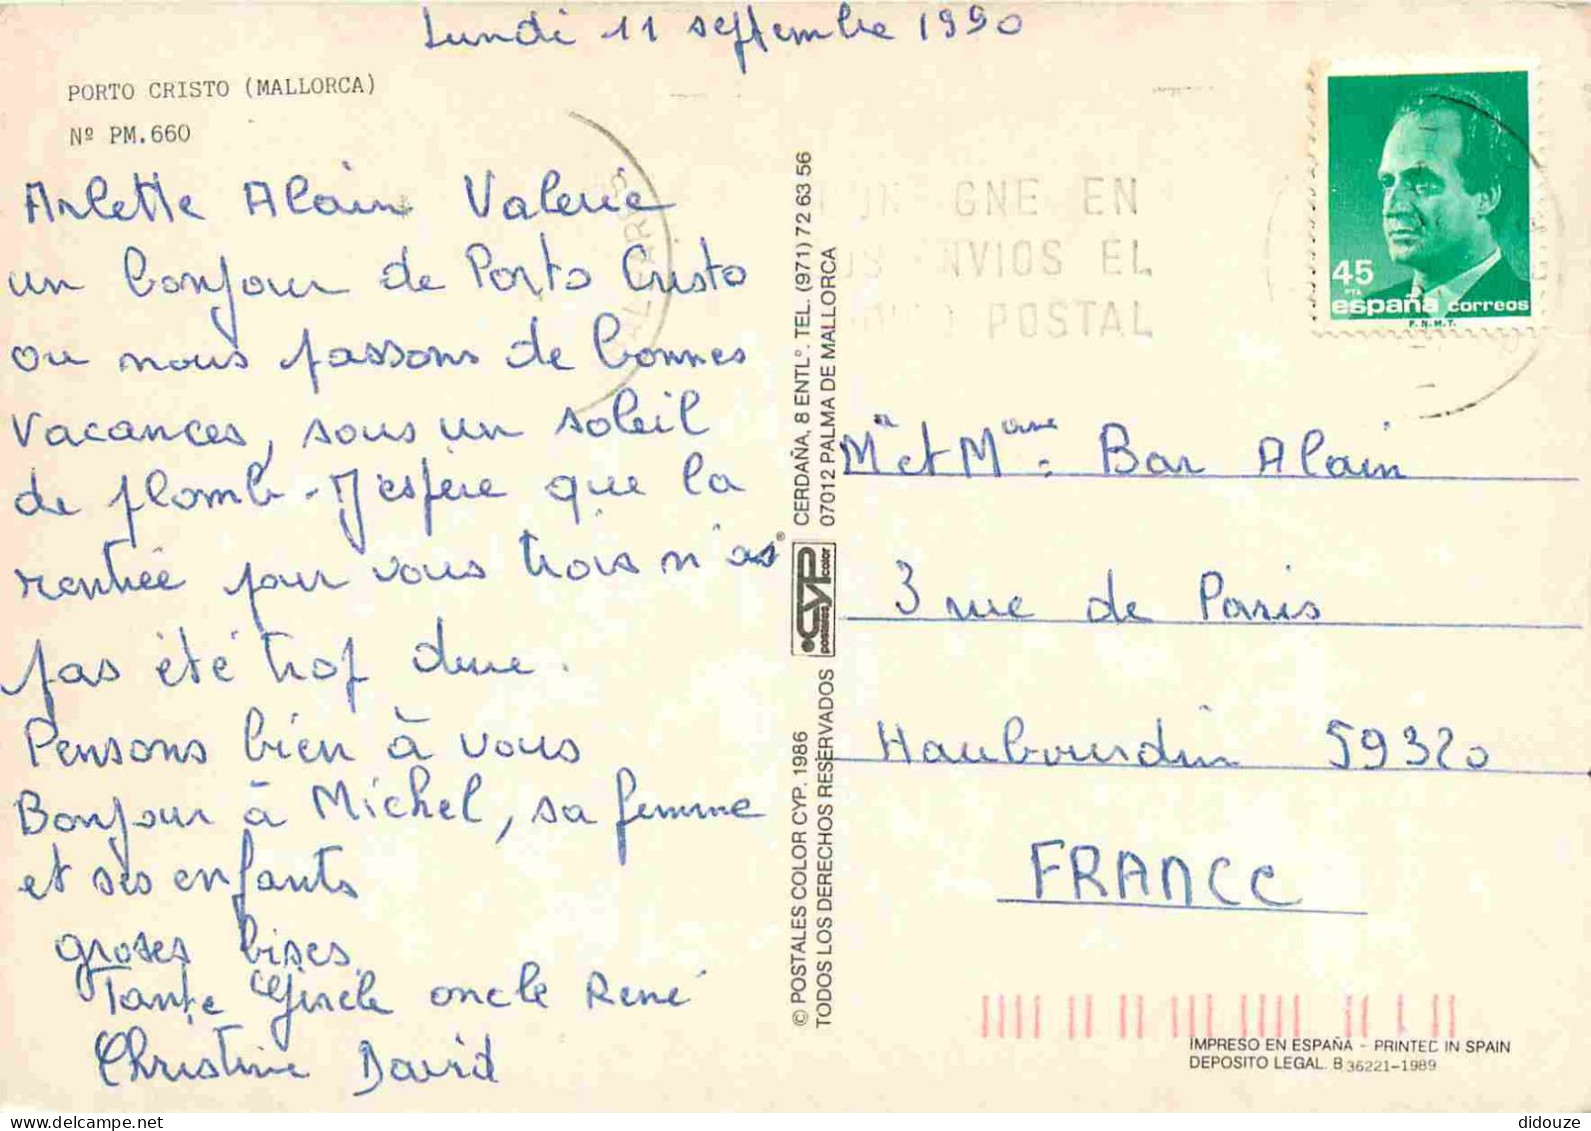 Lundi 11 septembre 1990
PORTO CRISTO (MALLORCA)
Nº PM.660
Arlette Alain Valerie
un bonjour de Porto Cristo
ou nous passons de bonnes
vacances, sous un soleil
de plomb - J'espère que la
rentrée pour vous trois n'as
pas été trop dure.
Pensons bien à vous
Bonjour à Michel, sa femme
et ses enfants
groses bises
Tante oncle René
Christine David
CERDAÑA, 8 ENTLº. TEL. (971) 72 63 56
07012 PALMA DE MALLORCA
CYP
postales color
®
© POSTALES COLOR CYP. 1986
TODOS LOS DERECHOS RESERVADOS
GNE EN
NVIOS EL
POSTAL
45
PTA
españa correos
F.N.M.T.
Mr et Mme : Bar Alain
3 rue de Paris
Haubourdin 59320
FRANCE
IMPRESO EN ESPAÑA - PRINTED IN SPAIN
DEPOSITO LEGAL. B 36221-1989
didouze